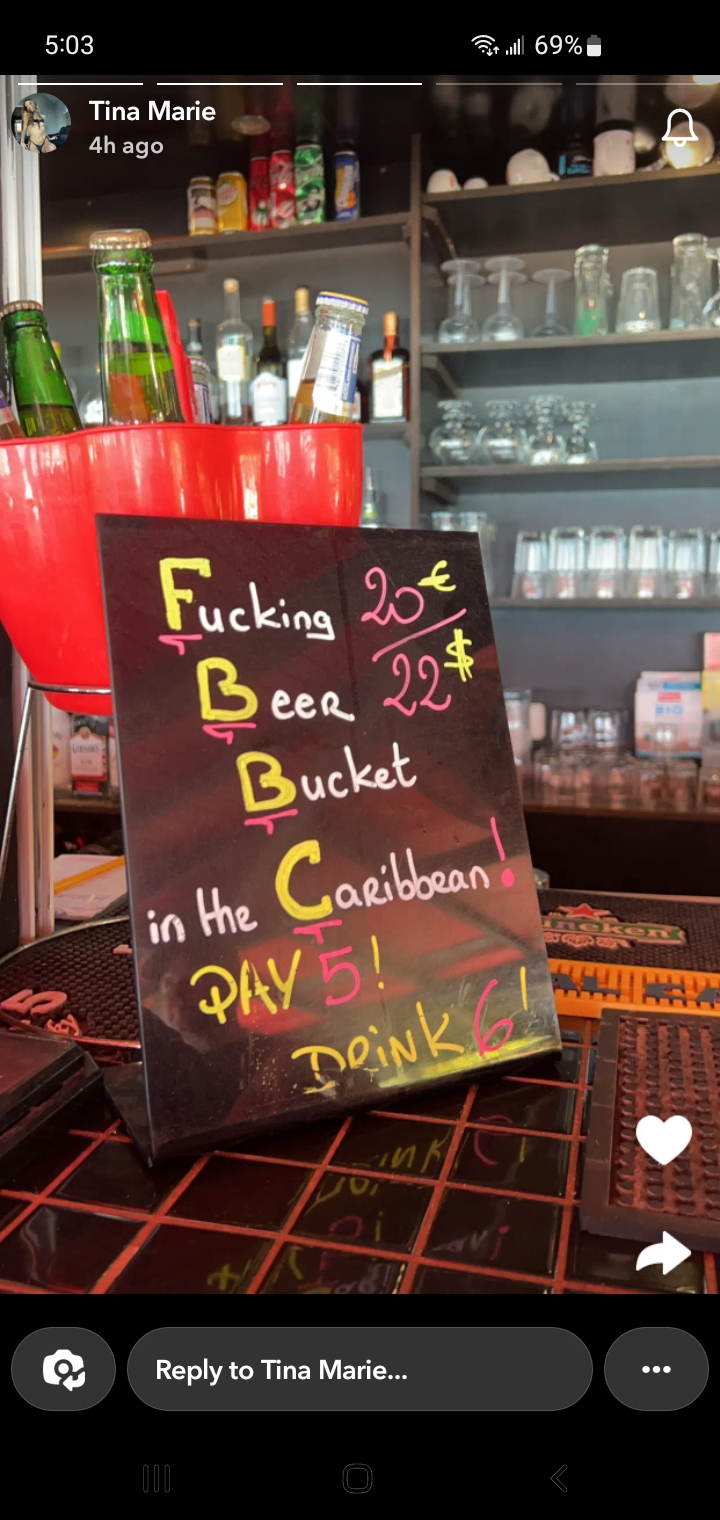 5:03
69%
Tina Marie
4h ago
Fucking 20€
Beer 22$
Bucket
in the Caribbean!
PAY 5!
DRINK 6!
Reply to Tina Marie...